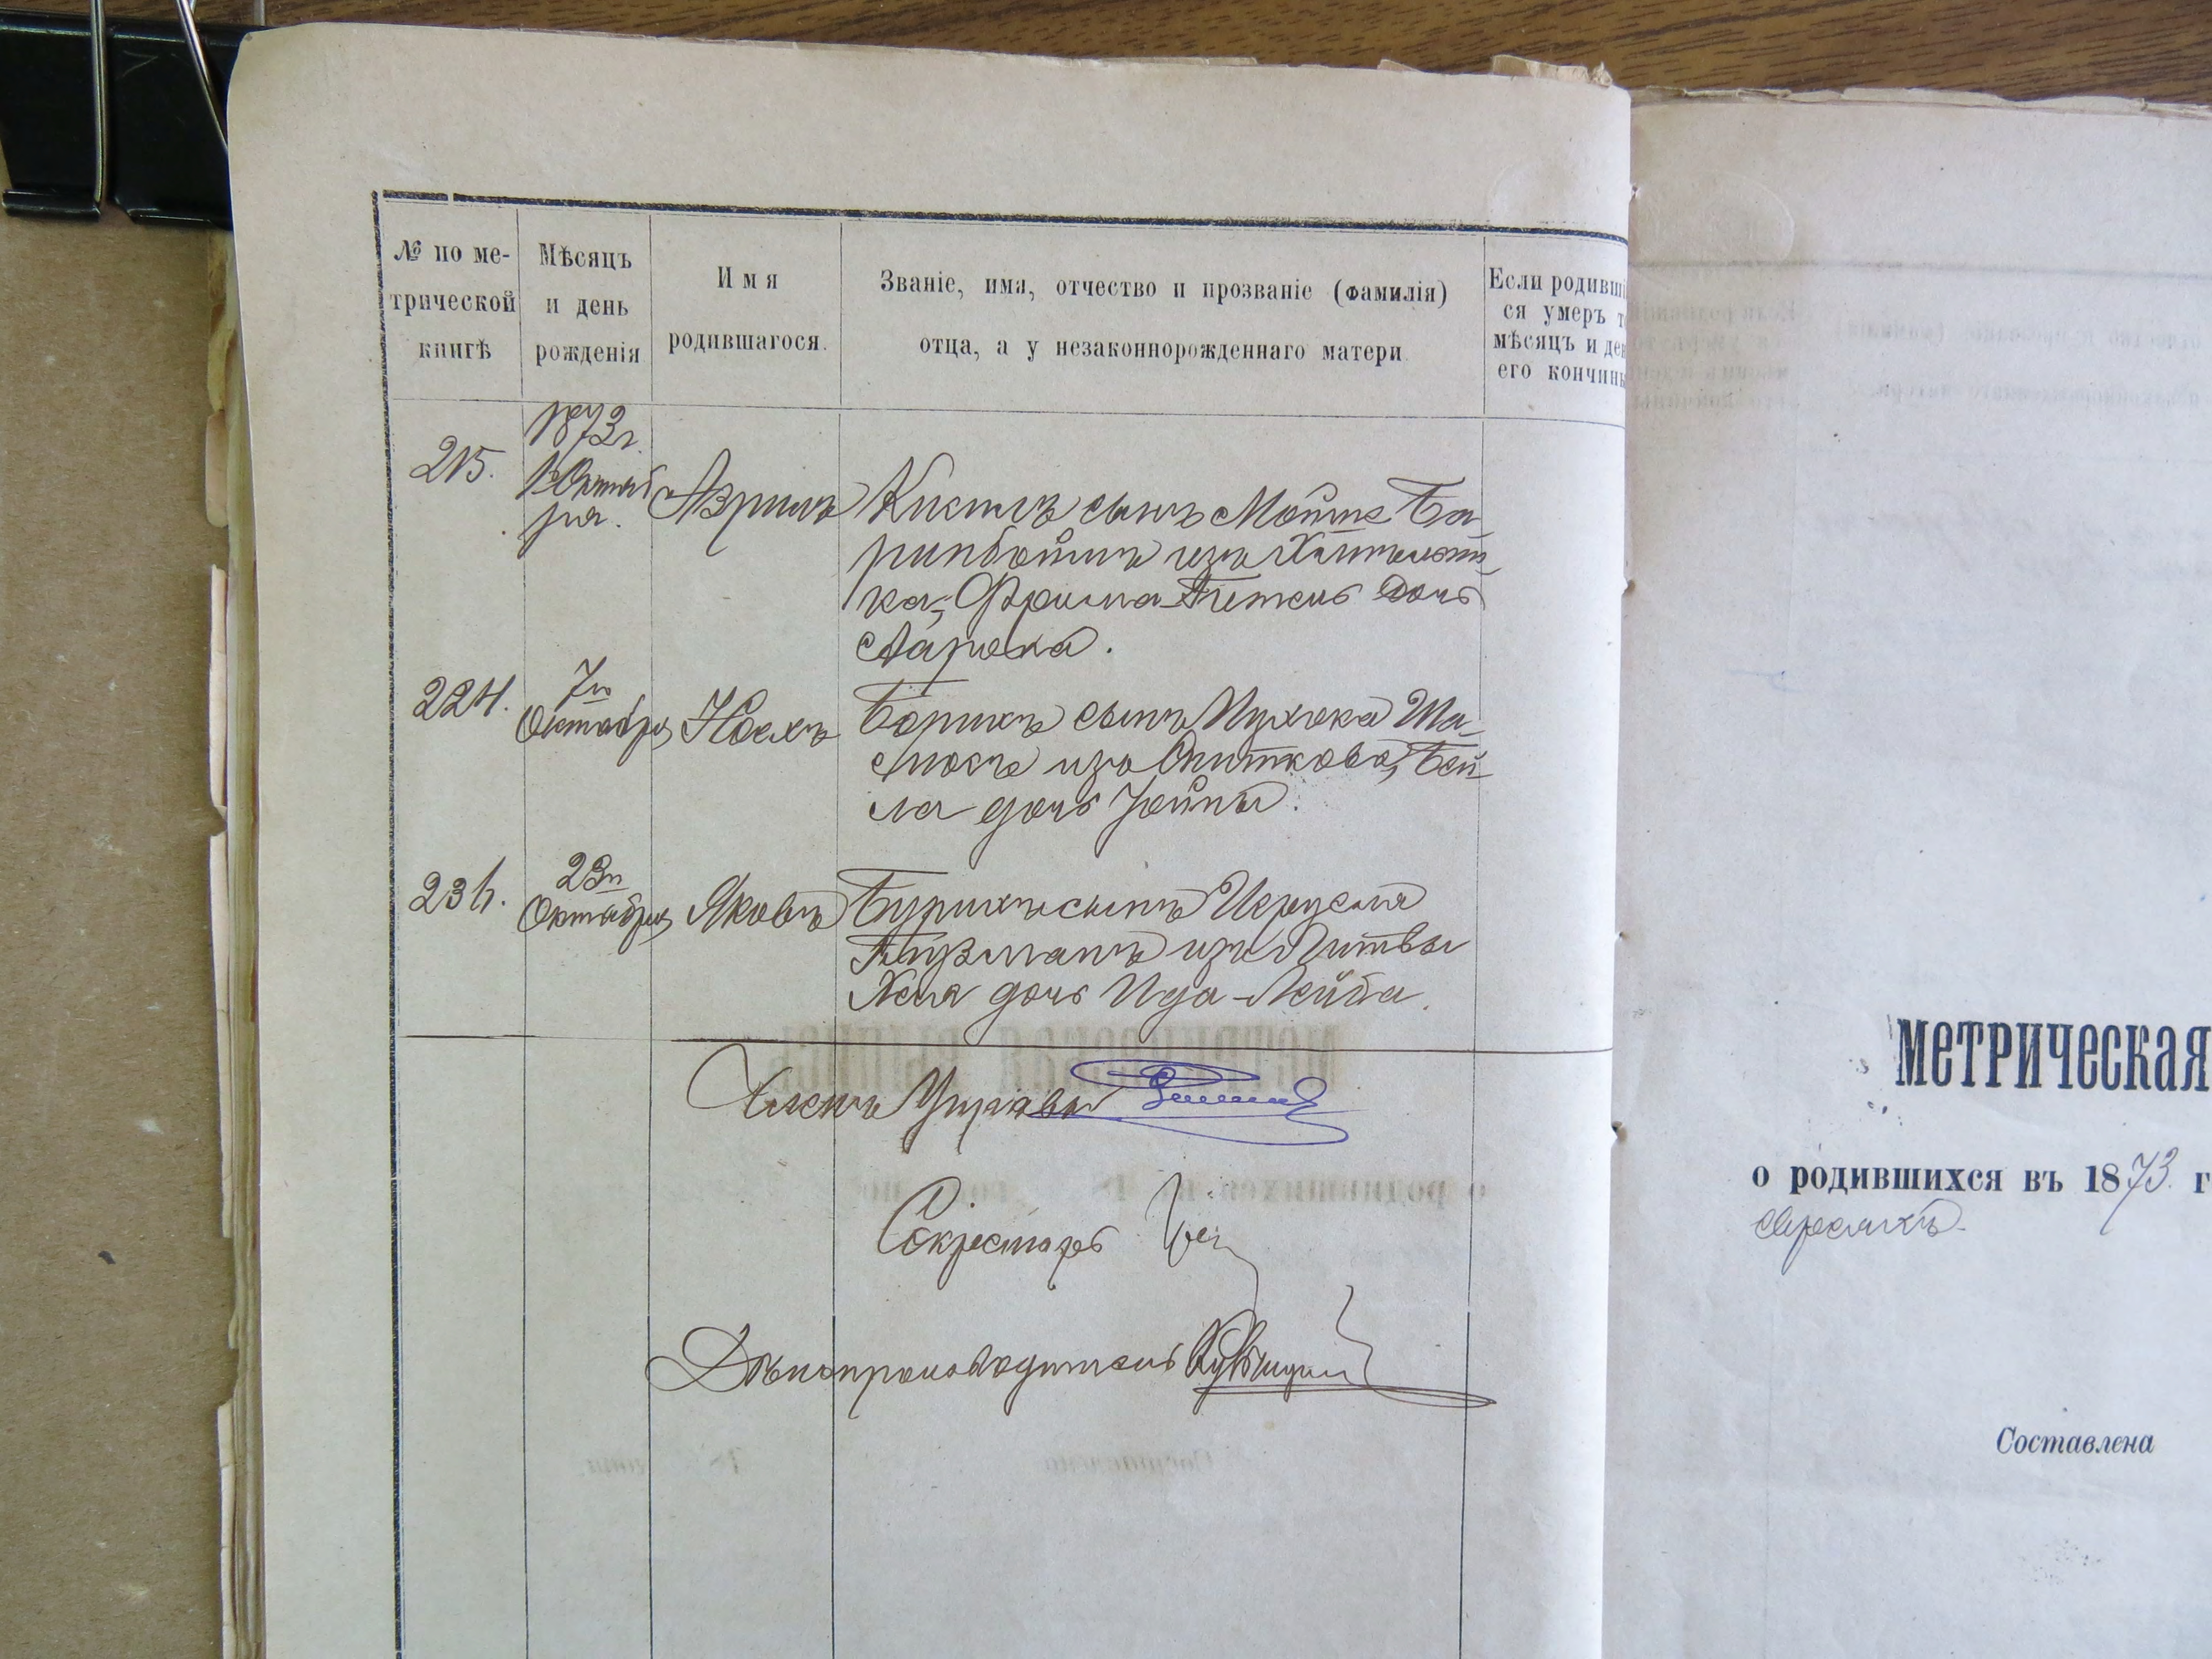 № по ме-
трической
книгѣ
Мѣсяцъ
и день
рожденія
Имя
родившагося.
Званіе, имя, отчество и прозваніе (фамилія)
отца, а у незаконнорожденнаго матери
Если родивші
ся умеръ то
мѣсяцъ и ден
его кончины
1873 г.
215.
Октяб
ря.
Азриль
Кисиль сынъ Мошке
изъ
ка, Фрима дочь
Арона.
224.
7го
Октября
Носхъ
Борихъ сынъ
изъ Сниткова, Бей-
ла дочь Іойны.
236.
23го
Октября
Яковъ
Бурихъ сынъ Исруеля
Гузманъ изъ Литвы
Хая дочь Ида-Лейба.
Членъ Управы
Секретарь
Дѣлопроизводитель
МЕТРИЧЕСКАЯ
о родившихся въ 1873 г
евреяхъ.
Составлена